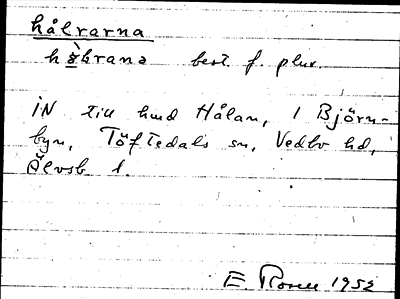 hålrarna
hs̀hrana best. f. plur.
IN till hmd Hålan, i Björn-
byn, Töftedals sn, Vedbo hd,
Älvsb l.
E. Rosell 1952